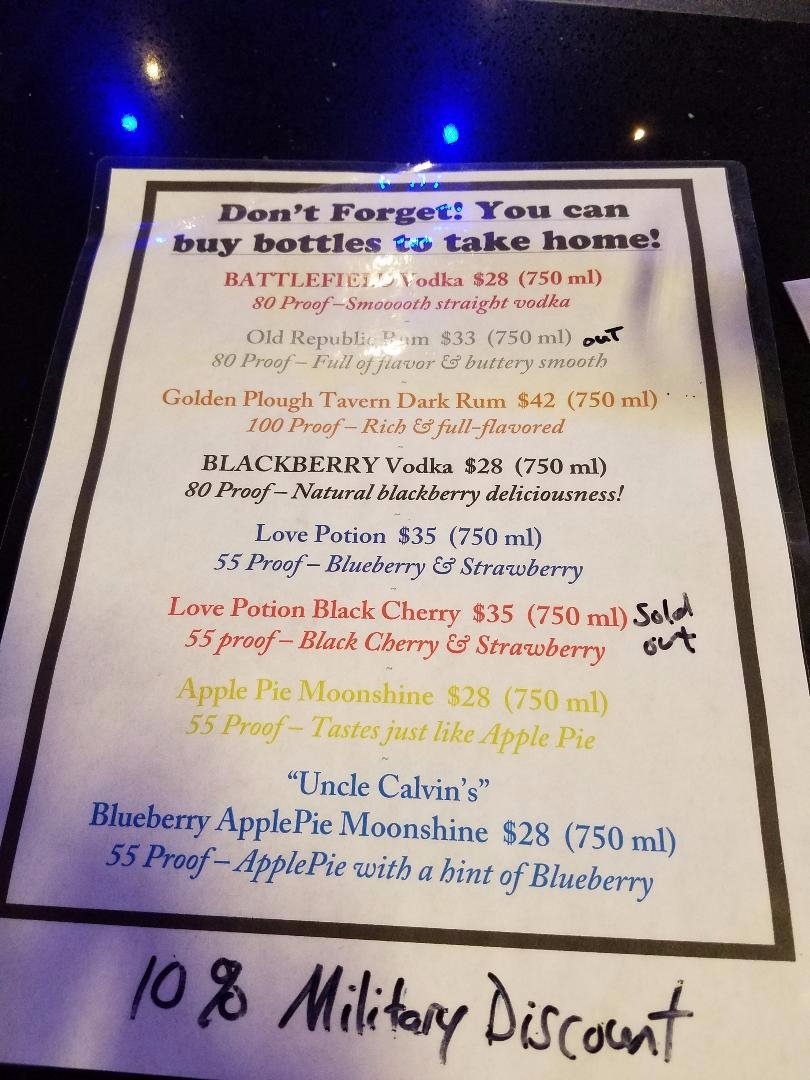 Don't Forget! You can
buy bottles to take home!
BATTLEFIELD Vodka $28 (750 ml)
80 Proof–Smooooth straight vodka
~
Old Republic Rum $33 (750 ml) out
80 Proof– Full of flavor & buttery smooth
~
Golden Plough Tavern Dark Rum $42 (750 ml)
100 Proof– Rich & full-flavored
~
BLACKBERRY Vodka $28 (750 ml)
80 Proof– Natural blackberry deliciousness!
~
Love Potion $35 (750 ml)
55 Proof– Blueberry & Strawberry
~
Love Potion Black Cherry $35 (750 ml) Sold out
55 proof– Black Cherry & Strawberry
~
Apple Pie Moonshine $28 (750 ml)
55 Proof– Tastes just like Apple Pie
~
“Uncle Calvin’s”
Blueberry ApplePie Moonshine $28 (750 ml)
55 Proof– ApplePie with a hint of Blueberry
10% Military Discount